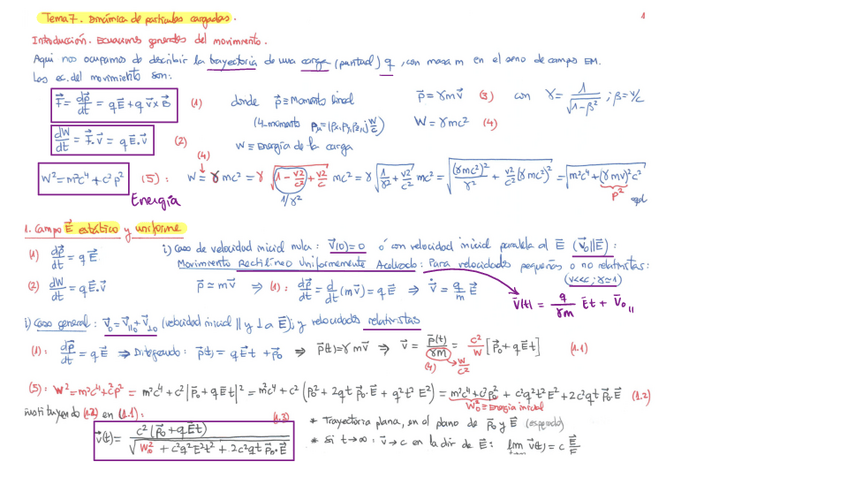 Tema 7. Dinámica de partículas cargadas. 1
Introducción. Ecuaciones generales del movimiento.
Aquí nos ocupamos de describir la trayectoria de una carga (puntual) q, con masa m en el seno de campo EM.
Las ec. del movimiento son:
F⃗ = dp⃗/dt = qE⃗ + qv⃗×B⃗ (1) donde p⃗ ≡ Momento lineal p⃗ = γmv⃗ (3) con γ = 1/√(1-β²) ; β = v/c
(4-momento W = γmc² (4)
dW/dt = F⃗·v⃗ = qE⃗·v⃗ (2) W ≡ Energía de la carga
(4)
W² = m²c⁴ + c²p² (5): W = γmc² = γ √(1 - v²/c² + v²/c) mc² = γ √(1/γ² + v²/c²) mc² = √((γmc²)²/γ² + v²/c² (γmc²)²) = √(m²c⁴ + (γmv)²c²)
1/γ² p²
Energía
1. Campo E⃗ estático y uniforme
(1) dp⃗/dt = qE⃗ i) Caso de velocidad inicial nula: v⃗(0)=0 ó con velocidad inicial paralela al E⃗ (v⃗₀∥E⃗):
Movimiento Rectilíneo Uniformemente Acelerado: Para velocidades pequeñas o no relativistas:
(2) dW/dt = qE⃗·v⃗ p⃗ = mv⃗ ⇒ (1): dp⃗/dt = d/dt (mv⃗) = qE⃗ ⇒ v⃗ = q/m E⃗ (v<<c; γ≃1)
v⃗(t) = q/γm E⃗t + v⃗₀∥
i) Caso general: v⃗₀ = v⃗∥₀ + v⃗⊥₀ (velocidad inicial ∥ y ⊥ a E⃗); y velocidades relativistas
(1): dp⃗/dt = qE⃗ ⇒ Integrando: p⃗(t) = qE⃗t + p⃗₀ ⇒ p⃗(t) = γmv⃗ ⇒ v⃗ = p⃗(t)/γm = c²/W [p⃗₀ + qE⃗t] (1.1)
(4) W/c²
(5): W² = m²c⁴ + c²p² = m²c⁴ + c²|p⃗₀ + qE⃗t|² = m²c⁴ + c²(p₀² + 2qt p⃗₀·E⃗ + q²t²E²) = m²c⁴ + c²p₀² + c²q²t²E² + 2c²qt p⃗₀·E⃗ (1.2)
W₀² ≡ Energía inicial
Sustituyendo (1.2) en (1.1):
v⃗(t) = c²(p⃗₀ + qE⃗t)/√(W₀² + c²q²E²t² + 2c²qt p⃗₀·E⃗) (1.3)
* Trayectoria plana, en el plano de p⃗₀ y E⃗ (esperado)
* Si t→∞: v⃗→c en la dir de E⃗: lim v⃗(t) = c E⃗/E